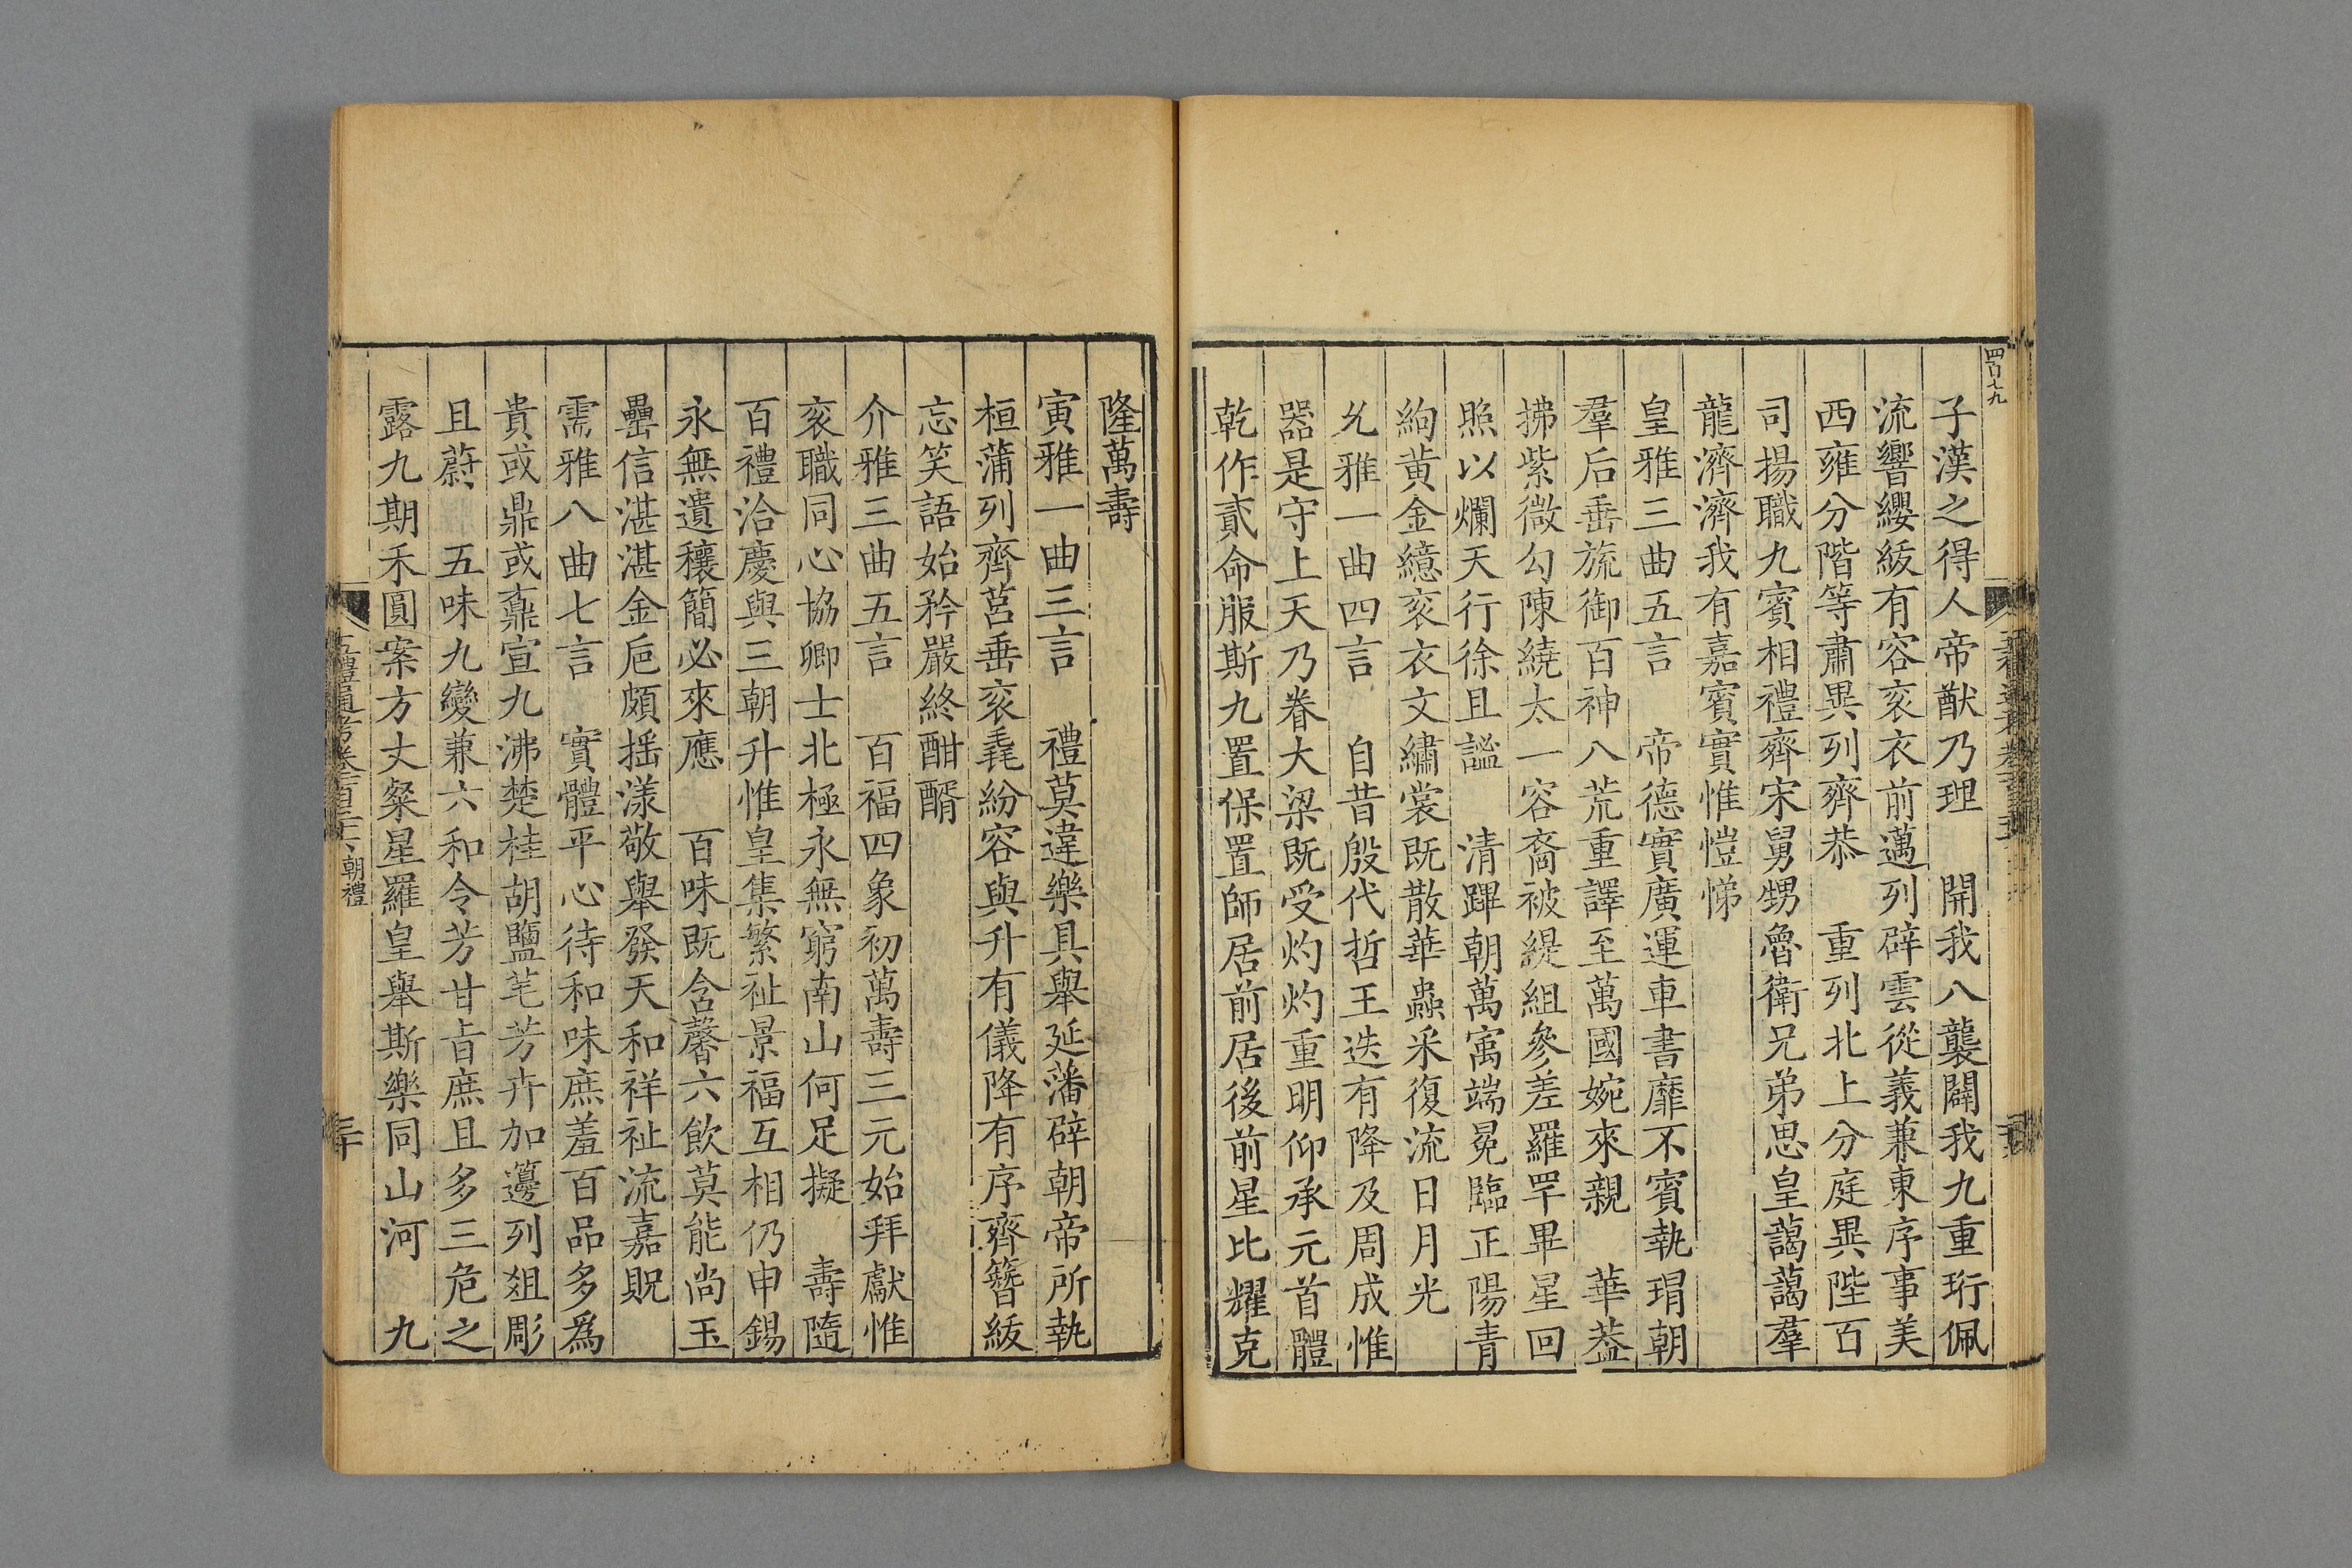 四百七九
子漢之得人帝猷乃理　開我八襲闢我九重珩佩
流響纓紱有容衮衣前邁列辟雲從義兼東序事美
西雍分階等肅異列齊恭　重列北上分庭異陛百
司揚職九賓相禮齊宋舅甥魯衛兄弟思皇藹藹羣
龍濟濟我有嘉賓實惟愷悌
皇雅三曲五言　帝德實廣運車書靡不賓執瑁朝
羣后垂旒御百神八荒重譯至萬國婉來親　華葢
拂紫微勾陳繞太一容裔被緹組參差羅罕畢星回
照以爛天行徐且謐　清蹕朝萬寓端冕臨正陽青
絢黄金繶衮衣文繡裳既散華蟲采復流日月光
允雅一曲四言　自昔殷代哲王迭有降及周成惟
器是守上天乃眷大梁既受灼灼重明仰承元首體
乾作貳命服斯九置保置師居前居後前星比耀克
隆萬壽
寅雅一曲三言　禮莫違樂具舉延藩辟朝帝所執
桓蒲列齊莒垂衮毳紛容與升有儀降有序齊簪紱
忘笑語始矜嚴終酣醑
介雅三曲五言　百福四象初萬壽三元始拜獻惟
衮職同心協卿士北極永無窮南山何足擬　壽隨
百禮洽慶與三朝升惟皇集繁祉景福互相仍申錫
永無遺穰簡必來應　百味既含馨六飲莫能尚玉
罍信湛湛金巵頗揺漾敬舉發天和祥祉流嘉貺
需雅八曲七言　實體平心待和味庶羞百品多爲
貴或鼎或鼒宣九沸楚桂胡鹽芼芳卉加籩列俎彫
且蔚　五味九變兼六和令芳甘旨庶且多三危之
露九期禾圓案方丈粲星羅皇舉斯樂同山河　九
五禮通考卷一百三十六　朝禮
三十